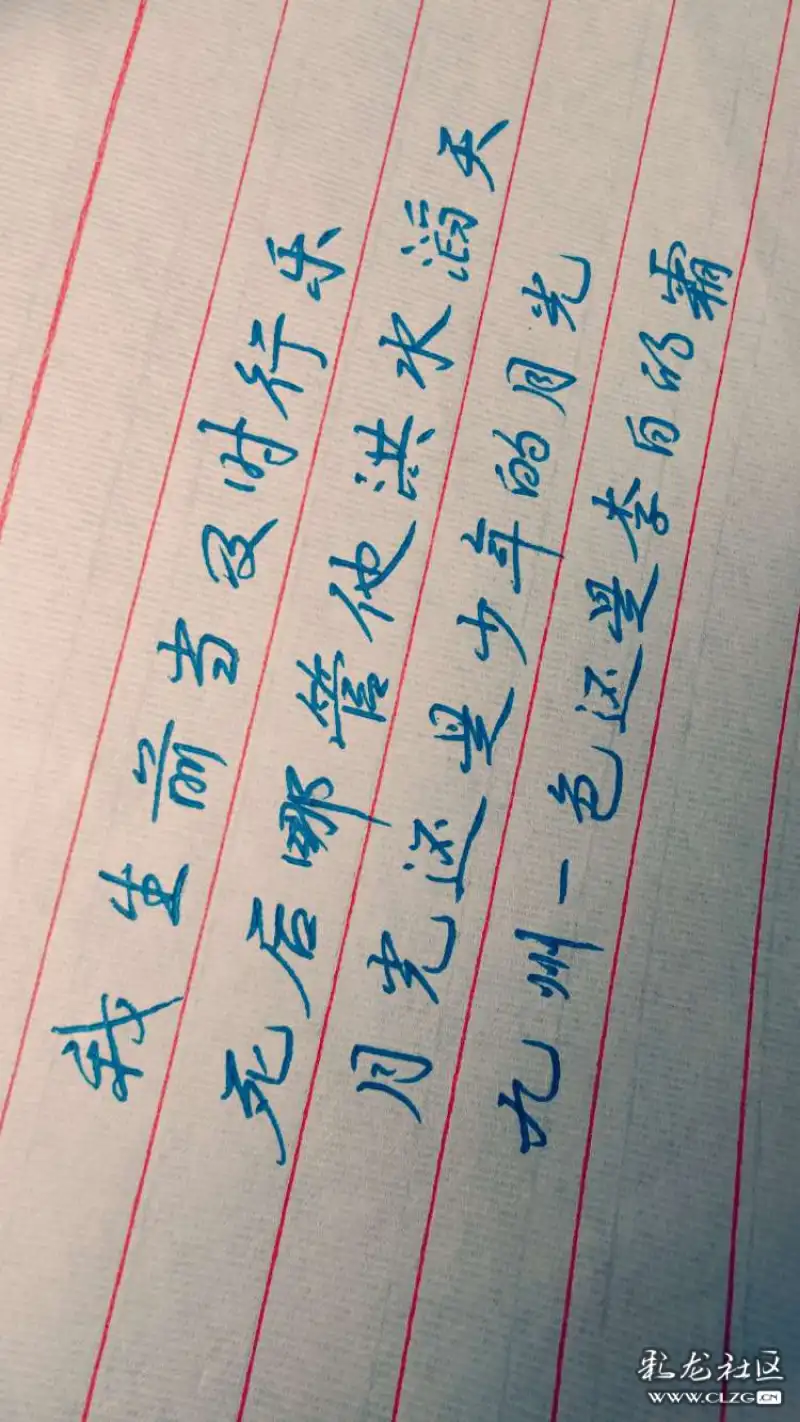 我生前当及时行乐
死后哪管他洪水滔天
月光还是少年的月光
九州一色还是李白的霜
彩龙社区
WWW.CLZG.CN